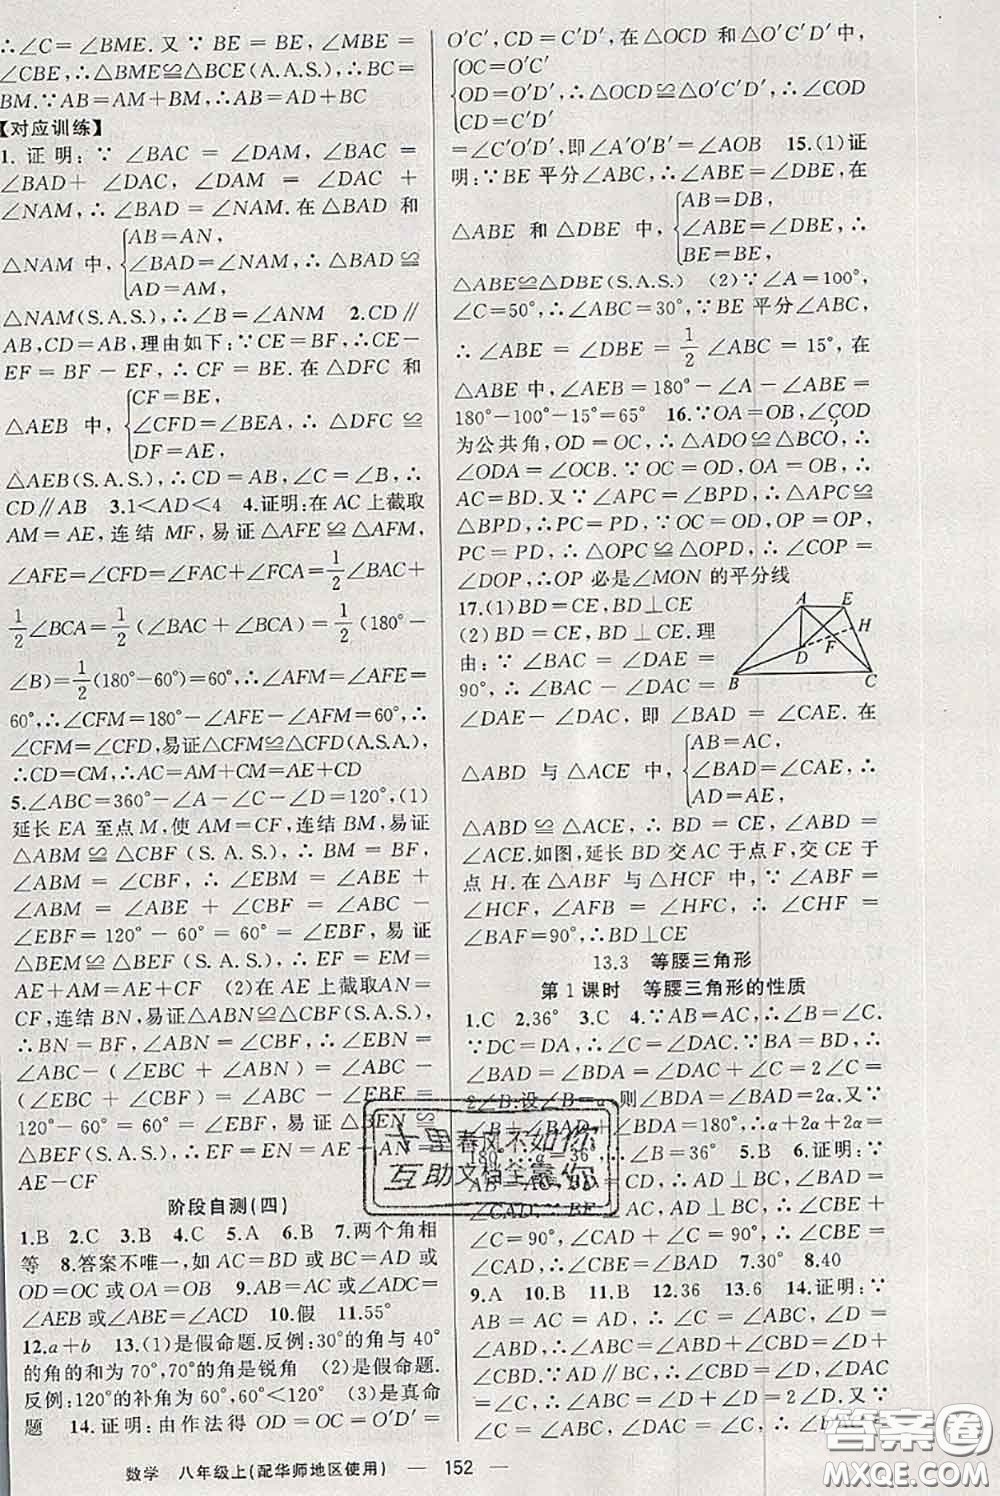 ∴∠C=∠BME.又∵BE=BE,∠MBE=
∠CBE,∴△BME≌△BCE(A.A.S.),∴BC=
BM.∵AB=AM+BM,∴AB=AD+BC
【对应训练】
1.证明:∵∠BAC=∠DAM,∠BAC=
∠BAD+∠DAC,∠DAM=∠DAC+
∠NAM,∴∠BAD=∠NAM.在△BAD 和
△NAM 中,{AB=AN,
∠BAD=∠NAM,∴△BAD≌
AD=AM,
△NAM(S.A.S.),∴∠B=∠ANM 2.CD∥
AB,CD=AB,理由如下:∵CE=BF,∴CE-
EF=BF-EF,∴CF=BE.在△DFC 和
△AEB 中,{CF=BE,
∠CFD=∠BEA,∴△DFC≌
DF=AE,
△AEB(S.A.S.),∴CD=AB,∠C=∠B,∴
CD∥AB 3.1<AD<4 4.证明:在AC上截取
AM=AE,连结MF,易证△AFE≌△AFM,
∠AFE=∠CFD=∠FAC+∠FCA=1/2∠BAC+
1/2∠BCA=1/2(∠BAC+∠BCA)=1/2(180°-
∠B)=1/2(180°-60°)=60°,∴∠AFM=∠AFE=
60°,∴∠CFM=180°-∠AFE-∠AFM=60°,∴
∠CFM=∠CFD,易证△CFM≌△CFD(A.S.A.),
∴CD=CM,∴AC=AM+CM=AE+CD
5.∠ABC=360°-∠A-∠C-∠D=120°,(1)
延长EA至点M,使AM=CF,连结BM,易证
△ABM≌△CBF(S.A.S.),∴BM=BF,
∠ABM=∠CBF,∴∠EBM=∠ABE+
∠ABM=∠ABE+∠CBF=∠ABC-
∠EBF=120°-60°=60°=∠EBF,易证
△BEM≌△BEF(S.A.S.),∴EF=EM=
AE+AM=AE+CF (2)在AE上截取AN=
CF,连结BN,易证△ABN≌△CBF(S.A.S.),
∴BN=BF,∠ABN=∠CBF,∴∠EBN=
∠ABC-(∠EBC+∠ABN)=∠ABC-
(∠EBC+∠CBF)=∠ABC-∠EBF=
120°-60°=60°=∠EBF,易证△BEN≌
△BEF(S.A.S.),∴EF=EN=AE-AN=
AE-CF
阶段自测(四)
1.B 2.C 3.B 4.C 5.A 6.B 7.两个角相
等 8.答案不唯一,如AC=BD或BC=AD或
OD=OC或OA=OB 9.AB=AC或∠ADC=
∠AEB或∠ABE=∠ACD 10.假 11.55°
12.a+b 13.(1)是假命题.反例:30°的角与40°
的角的和为70°,70°的角是锐角 (2)是假命题.
反例:120°的补角为60°,60°<120° (3)是真命
题 14.证明:由作法得OD=OC=O′D′=
O′C′,CD=C′D′,在△OCD 和△O′C′D′中,
{OC=O′C′
OD=O′D′,∴△OCD≌△O′C′D′,∴∠COD
CD=C′D′
=∠C′O′D′,即∠A′O′B′=∠AOB 15.(1)证
明:∵BE平分∠ABC,∴∠ABE=∠DBE,在
△ABE 和△DBE 中,{AB=DB,
∠ABE=∠DBE,∴
BE=BE,
△ABE≌△DBE(S.A.S.) (2)∵∠A=100°,
∠C=50°,∴∠ABC=30°,∵BE平分∠ABC,
∴∠ABE=∠DBE=1/2∠ABC=15°,在
△ABE 中,∠AEB=180°-∠A-∠ABE=
180°-100°-15°=65° 16.∵OA=OB,∠COD
为公共角,OD=OC,∴△ADO≌△BCO,∴
∠ODA=∠OCB.∵OC=OD,OA=OB,∴
AC=BD.又∵∠APC=∠BPD,∴△APC≌
△BPD,∴PC=PD,∵OC=OD,OP=OP,
PC=PD,∴△OPC≌△OPD,∴∠COP=
∠DOP,∴OP必是∠MON的平分线
17.(1)BD=CE,BD⊥CE
(2)BD=CE,BD⊥CE.理
由:∵∠BAC=∠DAE=
90°,∴∠BAC-∠DAC=
A E H D F B C
∠DAE-∠DAC,即∠BAD=∠CAE.在
△ABD 与△ACE 中,{AB=AC,
∠BAD=∠CAE,∴
AD=AE,
△ABD≌△ACE,∴BD=CE,∠ABD=
∠ACE.如图,延长BD交AC于点F,交CE于
点H.在△ABF与△HCF中,∵∠ABF=
∠HCF,∠AFB=∠HFC,∴∠CHF=
∠BAF=90°,∴BD⊥CE
13.3 等腰三角形
第1课时 等腰三角形的性质
1.C 2.36° 3.C 4.∵AB=AC,∴∠B=∠C.
∵DC=DA,∴∠C=∠DAC.∵BA=BD,∴
∠BAD=∠BDA=∠DAC+∠C=2∠C=
2∠B.设∠B=α,则∠BDA=∠BAD=2α.又∵
∠B+∠BAD+∠BDA=180°,∴α+2α+2α=
180°,∴α=36°,∴∠B=36° 5.B 6.证明:∵
AB=AC,BD=CD,∴
∠CAD.∵BE⊥AC,
∠C=90°,∠CAD+∠C=90°,∴∠CBE=
∠CAD,∴∠CBE=∠BAD 7.30° 8.40
9.A 10.B 11.B 12.36 13.6 14.证明:∵
AB=AC=AD,∴∠C=∠ABC,∠D=
∠ABD,∴∠ABC=∠CBD+∠ABD=∠D+
∠CBD.∵AD∥BC,∴∠CBD=∠D,∠DAC
=∠C,∴∠ABC=∠D+∠D=2∠D.又∵
∠C=∠ABC,∴∠C=2∠D
十里春风不如你
互助文档全靠你
答案卷
MXQE.COM
数学 八年级上(配华师地区使用) — 152 —